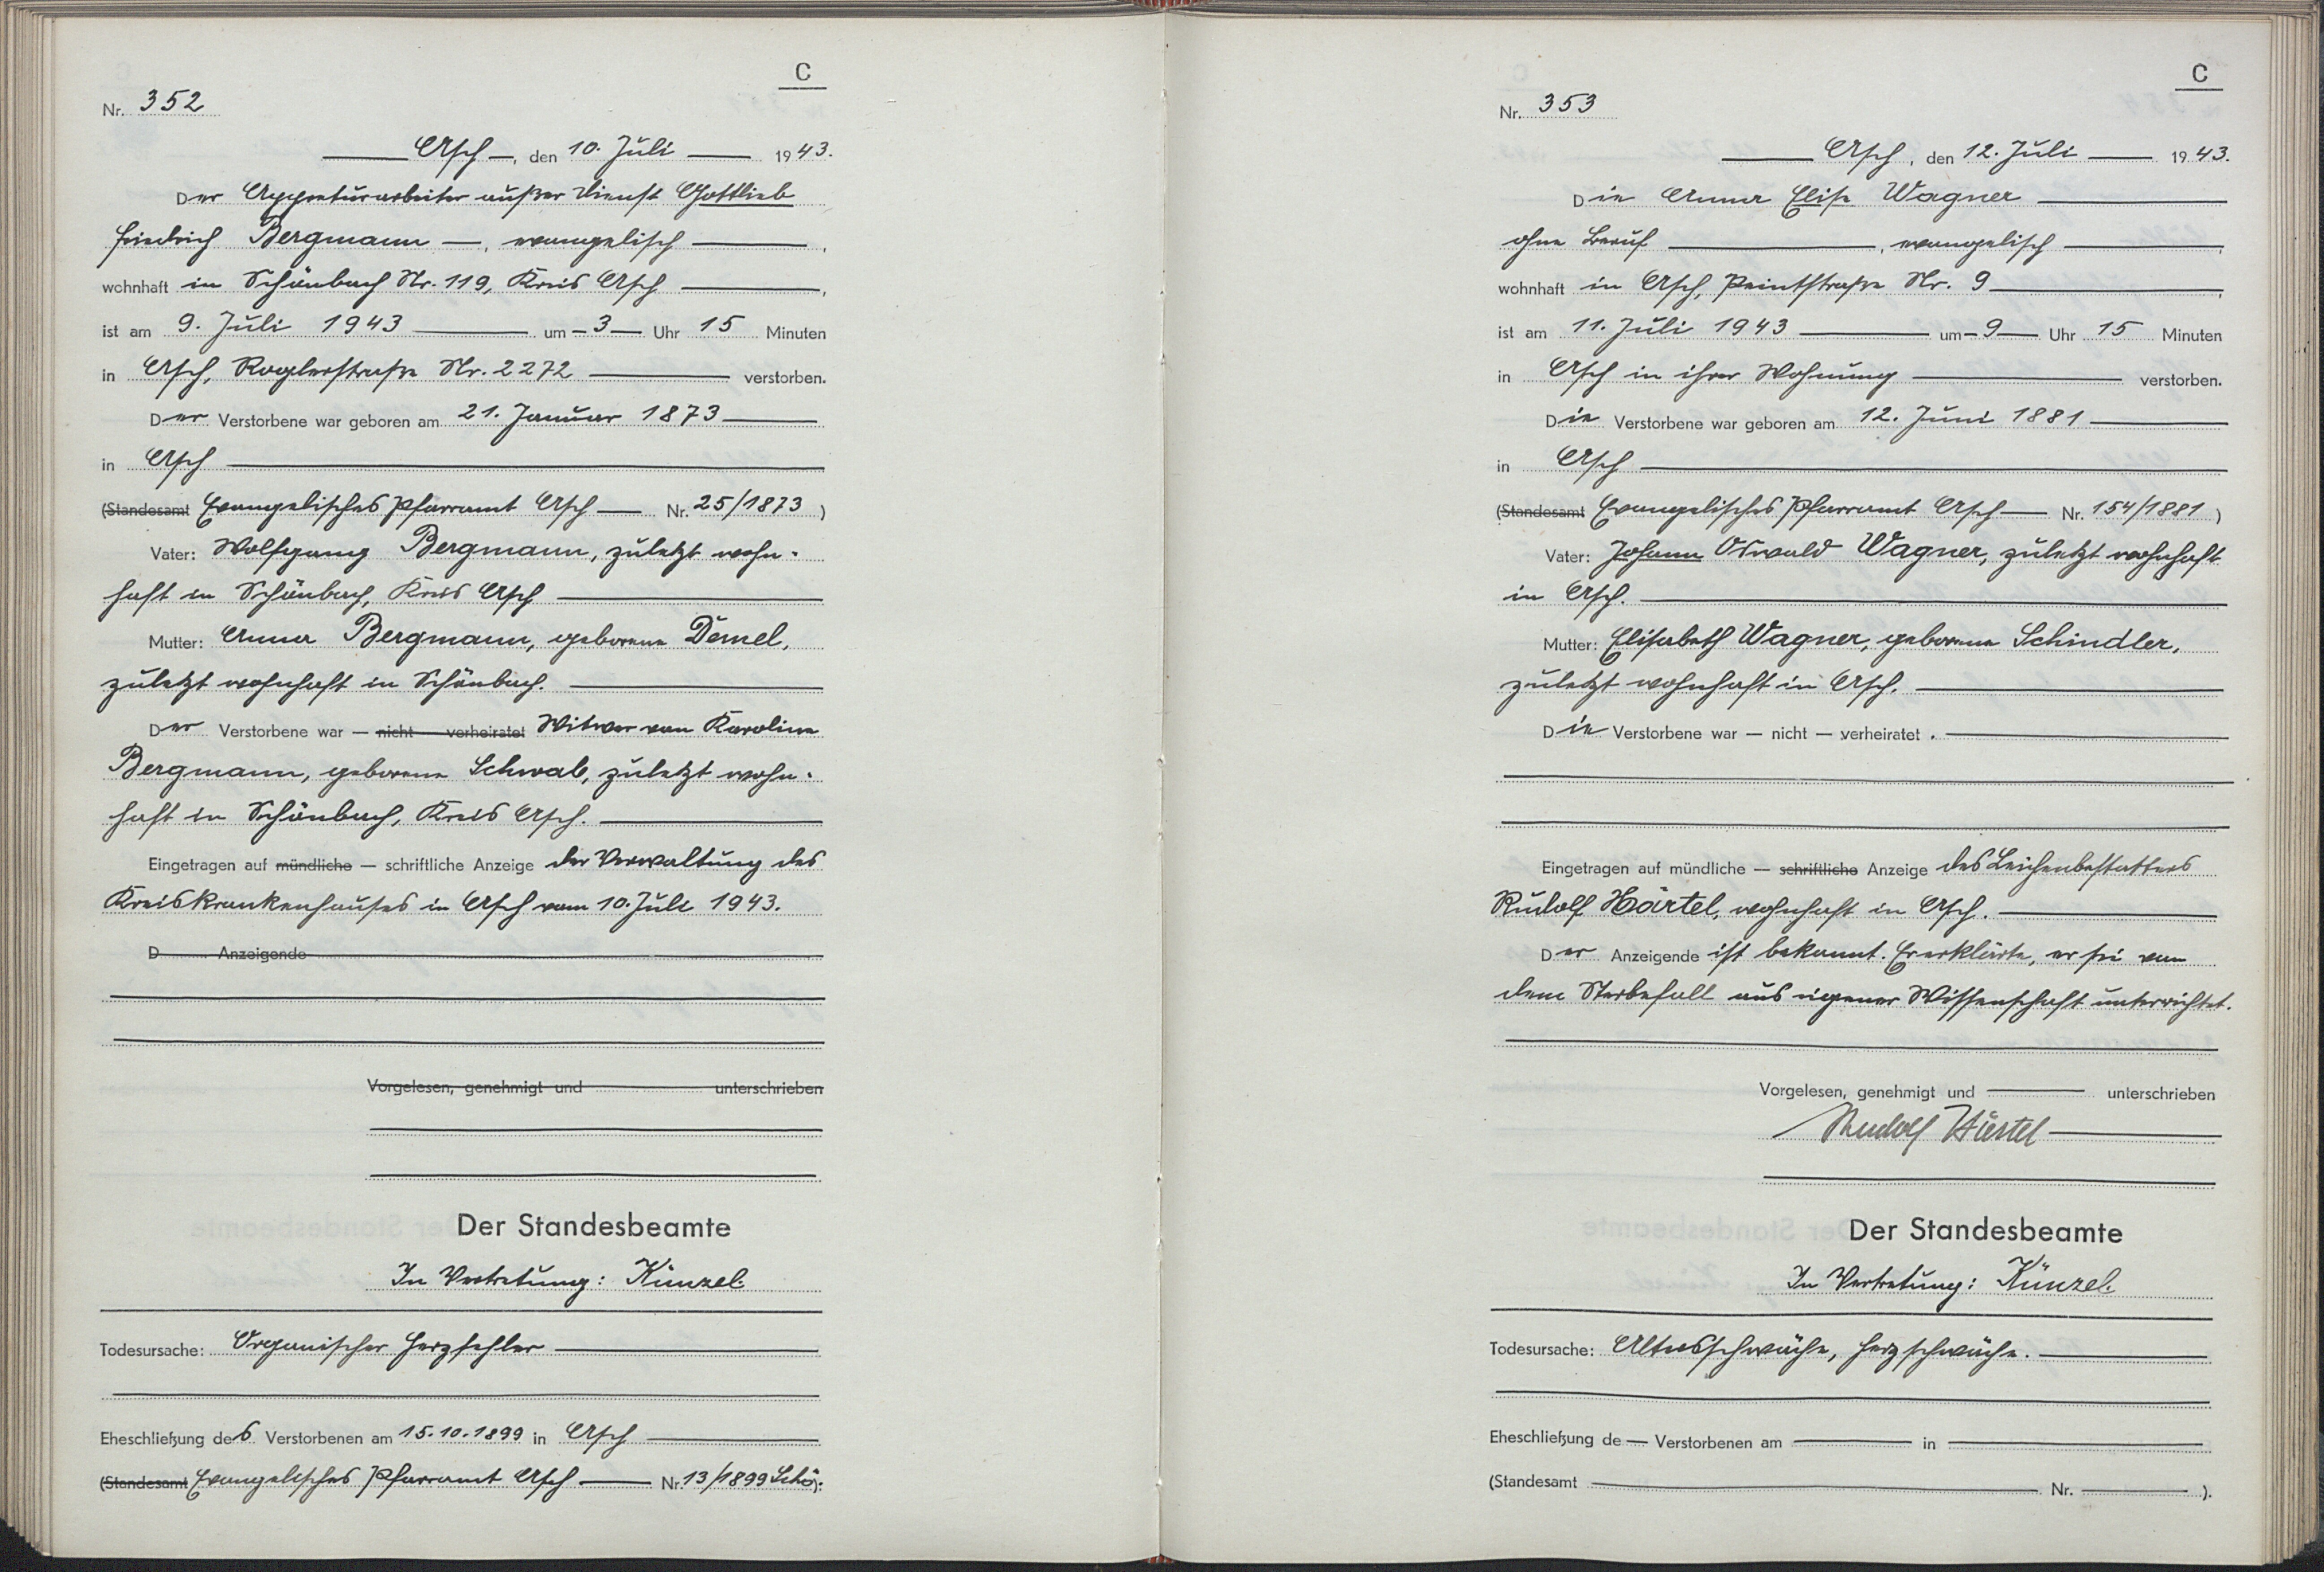 C
Nr. 352
Asch, den 10. Juli 1943.
Der Appreturarbeiter außer Dienst Gottlieb
Friedrich Bergmann, evangelisch,
wohnhaft in Schönbach Nr. 119, Kreis Asch,
ist am 9. Juli 1943 um 3 Uhr 15 Minuten
in Asch, Roglerstraße Nr. 2272 verstorben.
Der Verstorbene war geboren am 21. Januar 1873
in Asch
(Standesamt Evangelisches Pfarramt Asch Nr. 25/1873)
Vater: Wolfgang Bergmann, zuletzt wohn-
haft in Schönbach, Kreis Asch
Mutter: Anna Bergmann, geborene Demel,
zuletzt wohnhaft in Schönbach.
Der Verstorbene war — nicht — verheiratet Witwer von Karoline
Bergmann, geborene Schwab, zuletzt wohn-
haft in Schönbach, Kreis Asch.
Eingetragen auf mündliche — schriftliche Anzeige der Verwaltung des
Kreiskrankenhauses in Asch vom 10. Juli 1943.
D Anzeigende
Vorgelesen, genehmigt und unterschrieben
Der Standesbeamte
In Vertretung: Künzel.
Todesursache: Organischer Herzfehler
Eheschließung des Verstorbenen am 15.10.1899 in Asch
(Standesamt Evangelisches Pfarramt Asch Nr. 13/1899 Schö).
C
Nr. 353
Asch, den 12. Juli 1943.
Die Anna Elise Wagner
ohne Beruf, evangelisch,
wohnhaft in Asch, Peintstraße Nr. 9,
ist am 11. Juli 1943 um 9 Uhr 15 Minuten
in Asch in ihrer Wohnung verstorben.
Die Verstorbene war geboren am 12. Juni 1881
in Asch
(Standesamt Evangelisches Pfarramt Asch Nr. 154/1881)
Vater: Johann Oswald Wagner, zuletzt wohnhaft
in Asch.
Mutter: Elisabeth Wagner, geborene Schindler,
zuletzt wohnhaft in Asch.
Die Verstorbene war — nicht — verheiratet.
Eingetragen auf mündliche — schriftliche Anzeige des Leichenbestatters
Rudolf Härtel, wohnhaft in Asch.
Der Anzeigende ist bekannt. Er erklärte, er sei von
dem Sterbefall aus eigener Wissenschaft unterrichtet.
Vorgelesen, genehmigt und unterschrieben
Rudolf Härtel
Der Standesbeamte
In Vertretung: Künzel.
Todesursache: Altersschwäche, Herzschwäche.
Eheschließung de Verstorbenen am in
(Standesamt Nr. ).